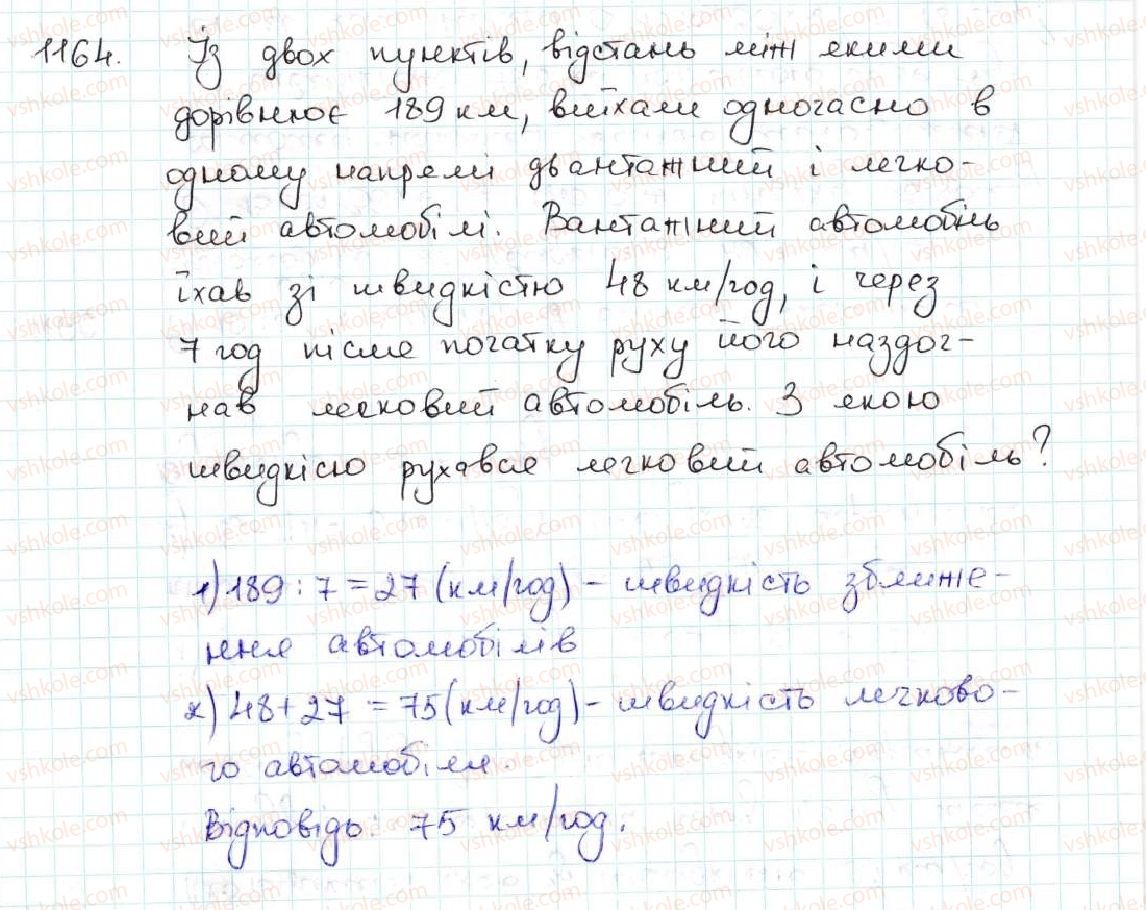 1164. Із двох пунктів, відстань між якими
дорівнює 189 км, виїхали одночасно в
одному напрямі двантажний і легко-
вий автомобілі. Вантажний автомобіль
їхав зі швидкістю 48 км/год, і через
7 год після початку руху його наздог-
нав легковий автомобіль. З якою
швидкісю рухався легковий автомобіль?
1) 189 : 7 = 27 (км/год) - швидкість зближе-
ння автомобілів
2) 48 + 27 = 75 (км/год) - швидкість легково-
го автомобіля.
Відповідь: 75 км/год.
vshkole.com